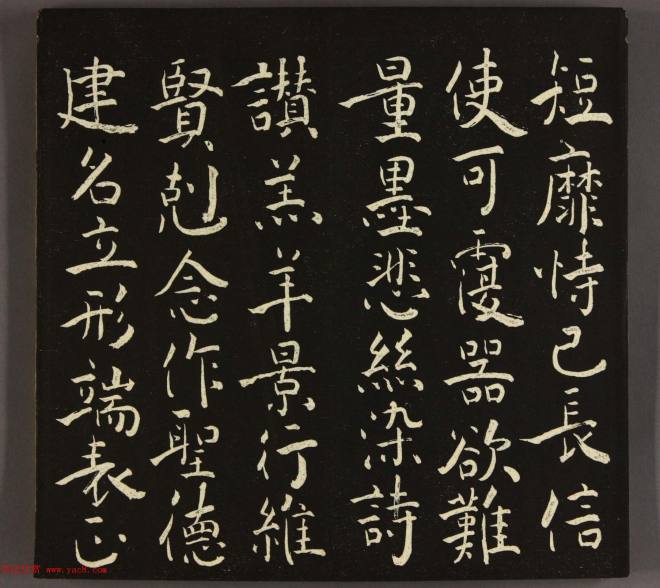 短靡恃己長信
使可覆器欲難
量墨悲絲染詩
讃羔羊景行維
賢剋念作聖德
建名立形端表正
www.yac8.com